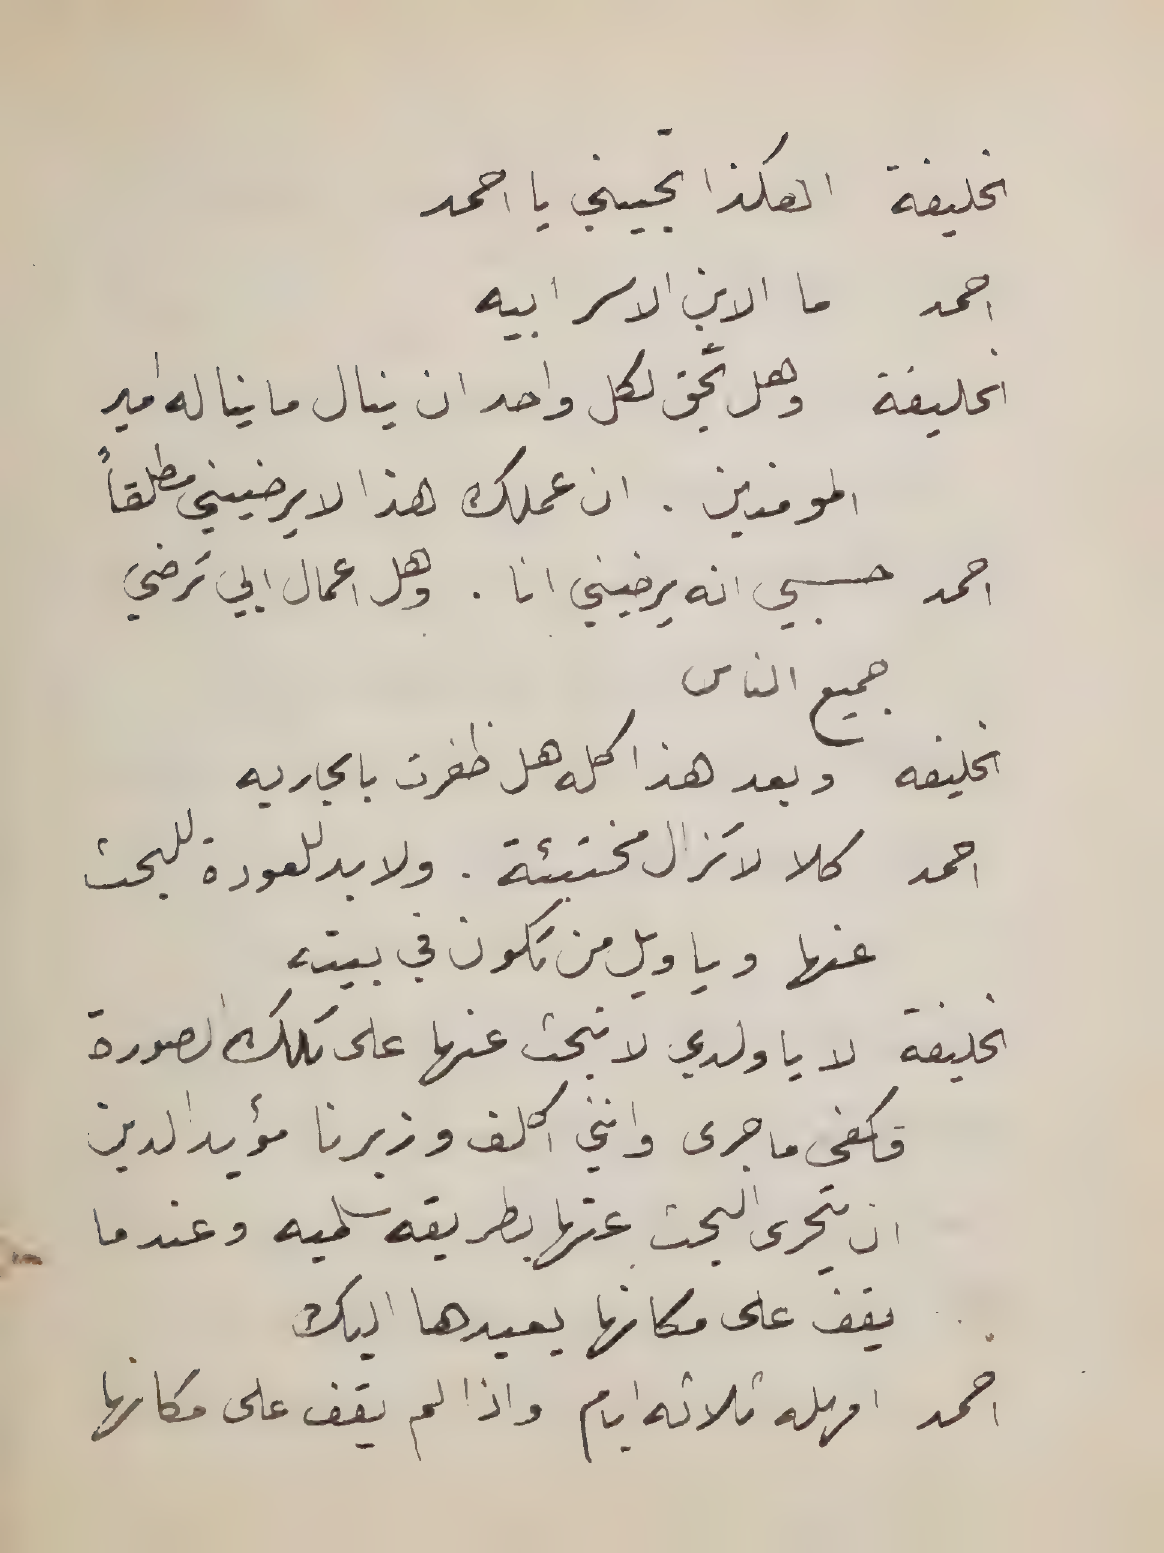 الخليفة أهكذا تجيبني يا احمد
احمد ما الابن الا سر ابيه
الخليفة وهل يحق لكل واحد ان ينال ما يناله امير
المومنين . ان عملك هذا لا يرضيني مطلقاً
احمد حسبي انه يرضيني انا . وهل اعمال ابي ترضي
جميع الناس
الخليفه وبعد هذا كله هل ظفرت بالجاريه
احمد كلا لا تزال مختبئة . ولا بد للعودة للبحث
عنها ويا ويل من تكون في بيته
الخليفة لا يا ولدي لا تبحث عنها على تلك الصورة
فكفى ما جرى وانني اكلف وزيرنا مؤيد الدين
ان يتحرى البحث عنها بطريقه سلميه وعندما
يقف على مكانها يعيدها اليك
احمد امهله ثلاثه ايام واذا لم يقف على مكانها